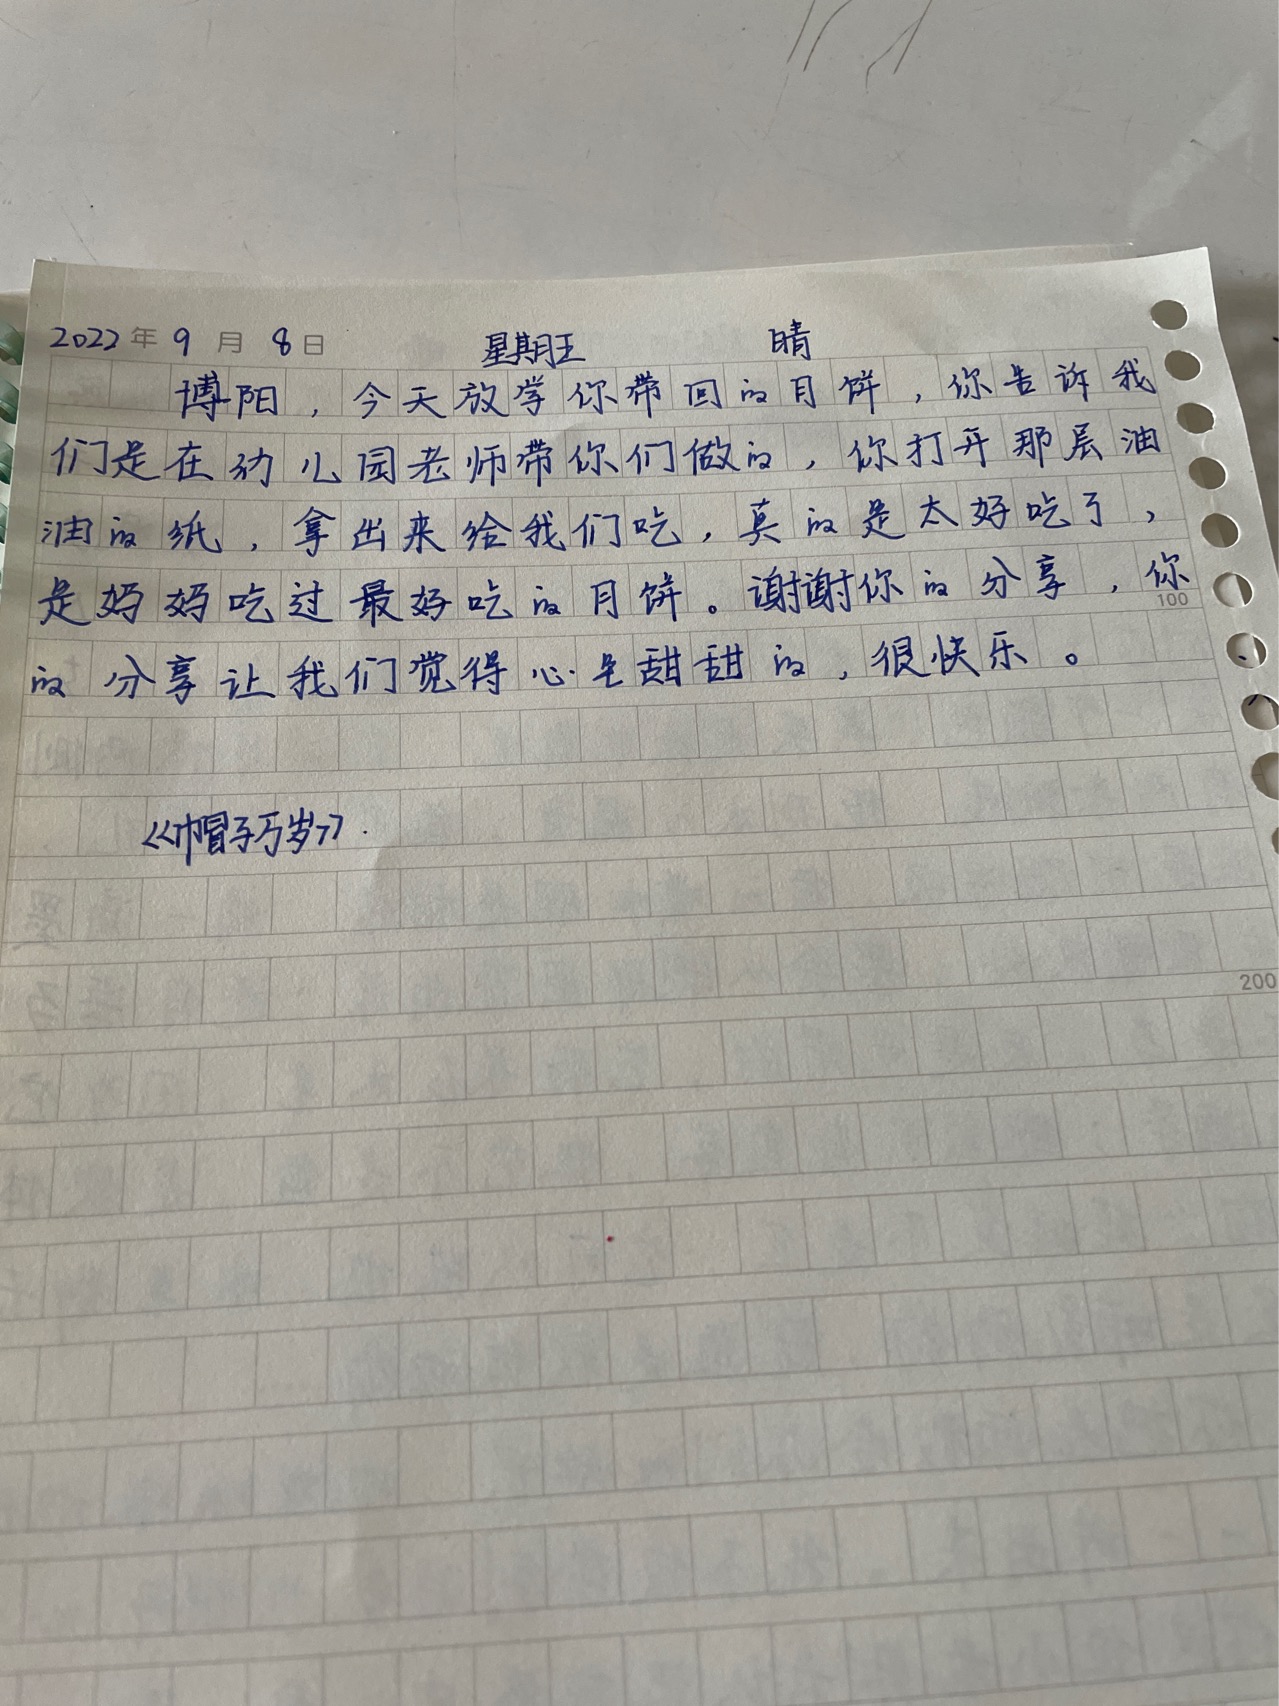 2022年 9月 8日 星期五 晴
博阳，今天放学你带回的月饼，你告诉我
们是在幼儿园老师带你们做的，你打开那层油
油的纸，拿出来给我们吃，真的是太好吃了，
是妈妈吃过最好吃的月饼。谢谢你的分享，你
100
的分享让我们觉得心里甜甜的，很快乐。
《巾帽子万岁》.
200